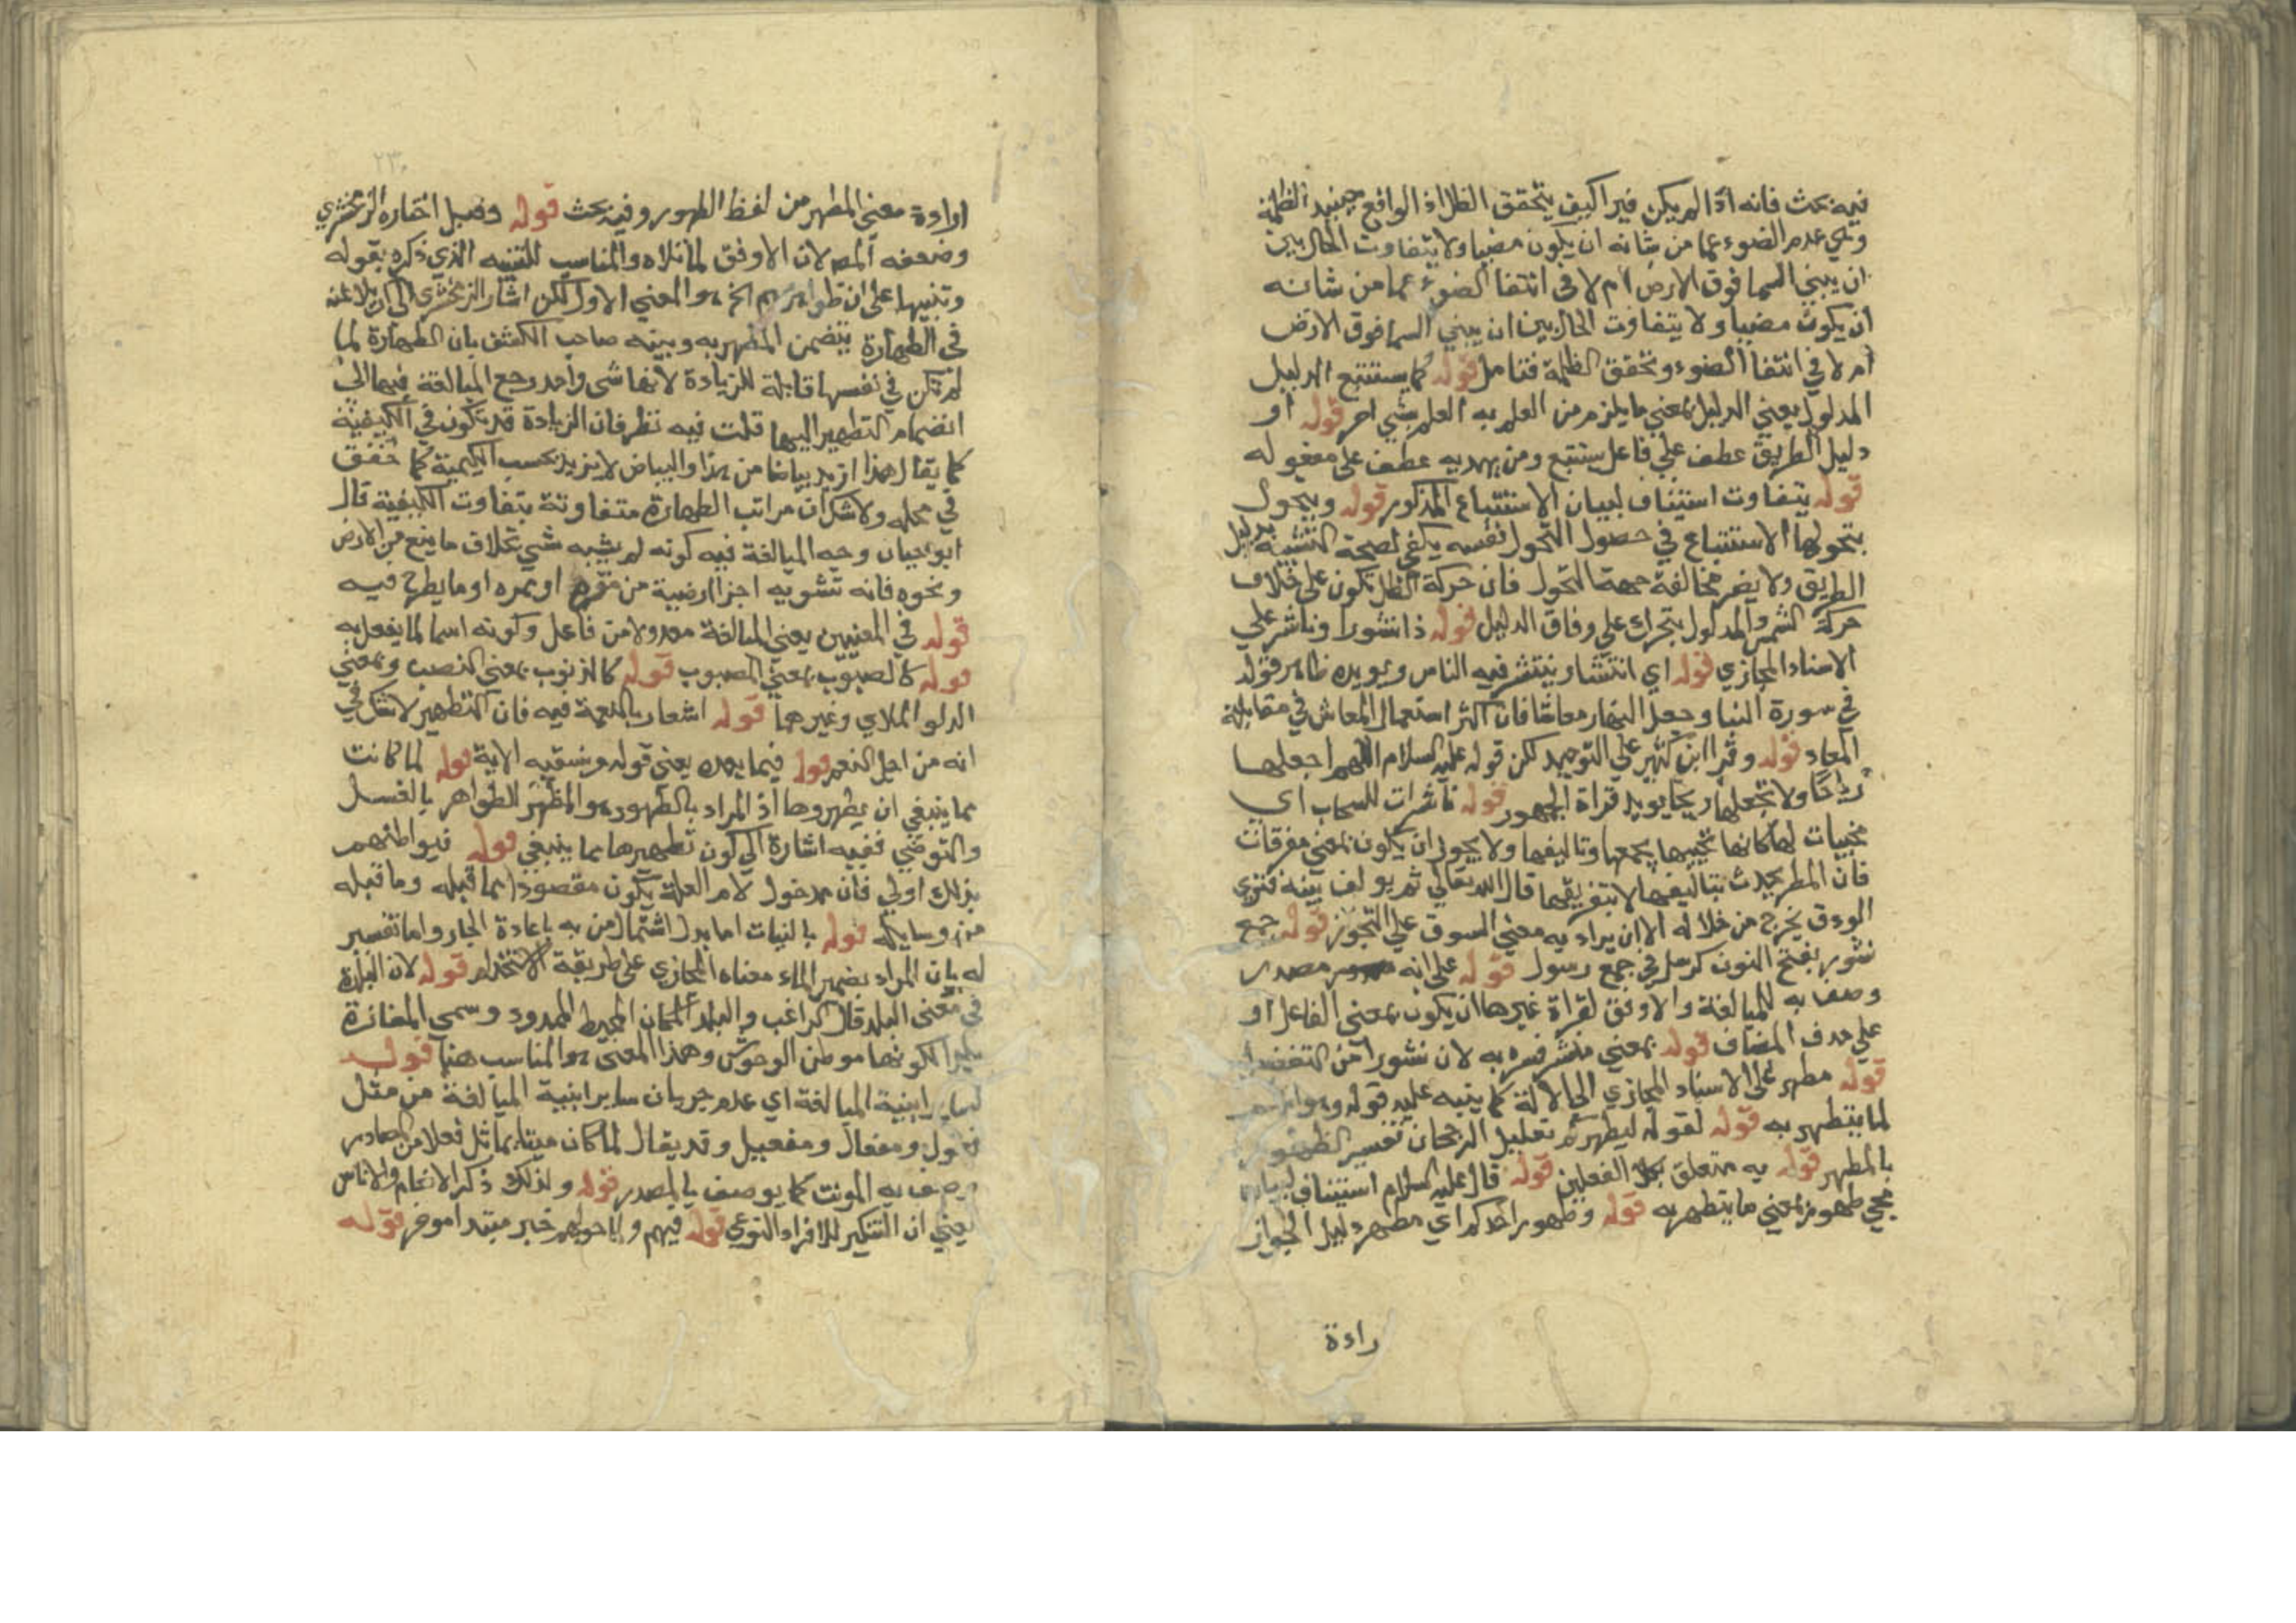 فيه بحث فانه اذا لم يكن نير اكيف يتحقق الظل اذ الواقع حينئذ الظلمة
وهي عدم الضوء عما من شانه ان يكون مضيا ولا يتفاوت الحال بين
ان يبني السما فوق الارض ام لا في انتفا الضوء عما من شانه
ان يكون مضيا ولا يتفاوت الحال بين ان يبني السما فوق الارض
ام لا في انتفا الضوء وتحقق الظلمة فتامل قوله كما يستتبع الدليل
المدلول يعني الدليل بمعني ما يلزم من العلم به العلم بشي اخر قوله او
دليل الطريق عطف علي فاعل يستتبع ومن يهديه عطف علي مفعوله
قوله يتفاوت استيناف لبيان الاستتباع المذكور قوله ويتحول
بتحولها الاستتباع في حصول التحول نفسه يكفي لصحة التشبيه بدليل
الطريق ولا يضر مخالفة جهة التحول فان حركة الظل تكون علي خلاف
حركة الشمس والمدلول يتحرك علي وفاق الدليل قوله ذا نشورا وناشر علي
الاسناد المجازي قوله اي انتشار ينتشر فيه الناس ويويده ظاهر قوله
في سورة النبا وجعل النهار معاشا فان اكثر استعمال المعاش في مقابلة
المعاد قوله وقرا ابن كثير علي التوحيد لكن قوله عليه السلام اللهم اجعلها
رياحا ولا تجعلها ريحا يويد قراة الجمهور قوله ناشرات للسحاب اي
محييات لها كانها تحييها بجمعها وتاليفها ولا يجوز ان يكون بمعني مفرقات
فان المطر يحدث بتاليفها لا بتفريقها قال الله تعالي ثم يولف بينه فتري
الودق يخرج من خلاله الا ان يراد به معني السوق علي التجوز قوله جمع
نشور بفتح النون كرسل في جمع رسول قوله علي انه مصدر
وصف به للمبالغة والاوفق لقراة غيرها ان يكون بمعني الفاعل او
علي حذف المضاف قوله بمعني فسره به لان نشورا من
قوله مطهر علي الاسناد المجازي الي الالة كما ينبه عليه قوله وهو
لما يتطهر به قوله لقوله ليطهركم تعليل الرجحان تفسير الطهور
بالمطهر قوله به متعلق بكلا الفعلين قوله قال عليه السلام استيناف لبيان
مجي طهور بمعني ما يتطهر به قوله وطهور احدكم اي مطهر دليل الجواز
راءة
ارادة معني المطهر من لفظ الطهور وفيه بحث قوله وقيل اختاره الزمخشري
وضعفه المص لان الاوفق لما تلاه والمناسب للتنبيه الذي ذكره بقوله
وتنبيها علي ان ظواهرهم الخ هو المعني الاول لكن اشار الزمخشري الي ان
في الطهارة يتضمن المطهر به وبينه صاحب الكشف بان الطهارة لما
لم تكن في نفسها قابلة للزيادة لانها شي واحد رجع المبالغة فيها الي
انضمام التطهير اليها قلت فيه نظر فان الزيادة قد تكون في الكيفية
كما يقال هذا ازيد بياضا من هذا والبياض لا يزيد بحسب الكمية كما حقق
في محله ولا شك ان مراتب الطهارة متفاوتة بتفاوت الكيفية قال
ابو حيان وجه المبالغة فيه كونه لم يشبه شي بخلاف ما ينبع من الارض
ونحوه فانه تشوبه اجزا ارضية من مقره او ممره او ما يطرح فيه
قوله في المعنيين يعني المبالغة معدولا من فاعل وكونه اسما لما يفعل به
قوله كالصبوب بمعني المصبوب قوله كالذنوب بمعني النصيب وبمعني
الدلو الملاي وغيرهما قوله اشعار بالنعمة فيه فان التطهير لا شك في
انه من اجل النعم قوله فيما بعده يعني قوله ونسقيه الاية قوله لما كانت
مما ينبغي ان يطهروها اذ المراد بالطهور هو المطهر للظواهر بالغسل
والتوضي ففيه اشارة الي كون تطهيرها مما ينبغي قوله فبواطنهم
بذلك اولي فان مدخول لام العلة يكون مقصودا بما قبله وما قبله
من وسايله قوله بالنبات اما بدل اشتمال من به باعادة الجار واما تفسير
له بان المراد بضمير الماء معناه المجازي علي طريقة الاستخدام قوله لان البلدة
في معني البلد قال الراغب والبلد المكان المحيط المحدود وسمي المفازة
بلدا لكونها موطن الوحوش وهذا المعني هو المناسب هنا قوله
لساير ابنية المبالغة اي عدم جريان ساير ابنية المبالغة من مثل
فعول ومفعال ومفعيل وقد يقال لما كان ميتا يماثل فعلا من المصادر
وصف به المونث كما يوصف بالمصدر قوله ولذلك ذكر الانعام والاناس
يعني ان التنكير للافراد النوعي قوله فيهم ولما حولهم خبر مبتدا موخر قوله